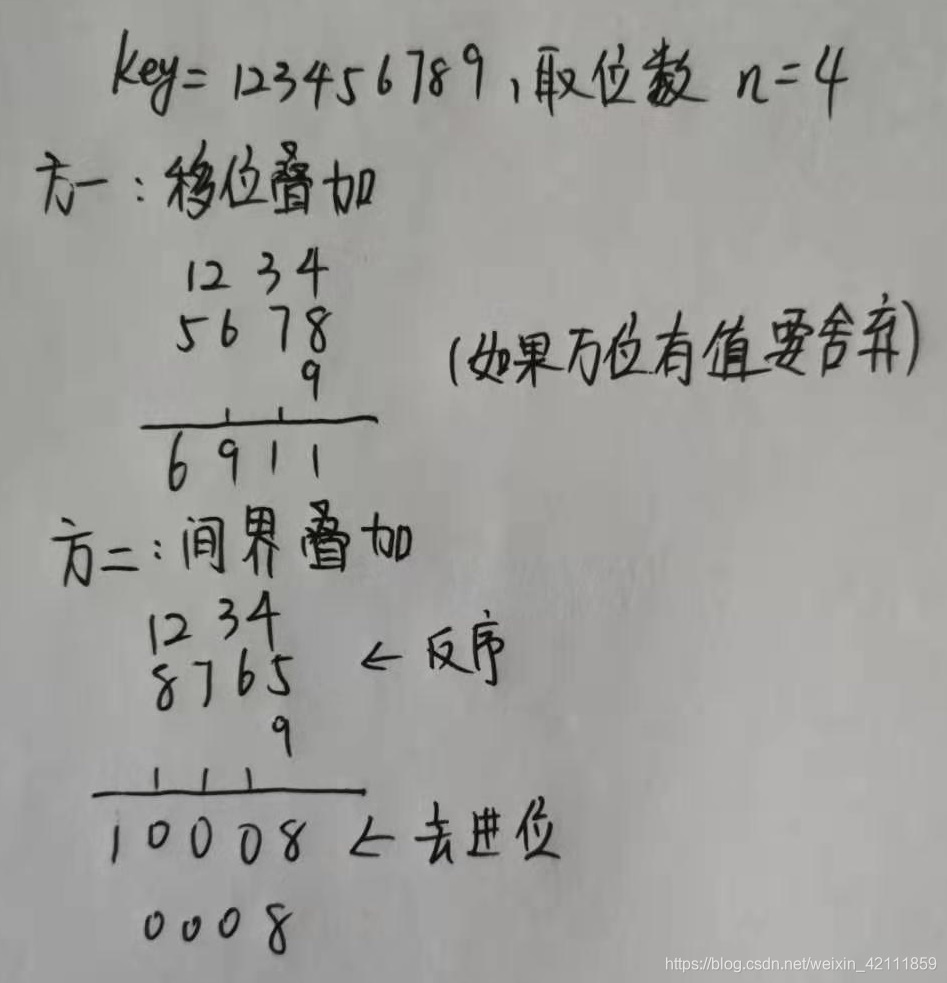 key=123456789,取位数 n=4
方一:移位叠加
1234
5678
(如果万位有值要舍弃)
9
6911
方二:间界叠加
1234
8765 ← 反序
9
1 1 1
10008 ← 去进位
0008
https://blog.csdn.net/weixin_42111859